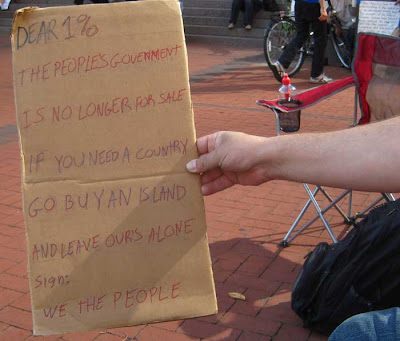 DEAR 1%
THE PEOPLE'S GOVERNMENT
IS NO LONGER FOR SALE
IF YOU NEED A COUNTRY
GO BUY AN ISLAND
AND LEAVE OUR'S ALONE
Sign:
WE THE PEOPLE